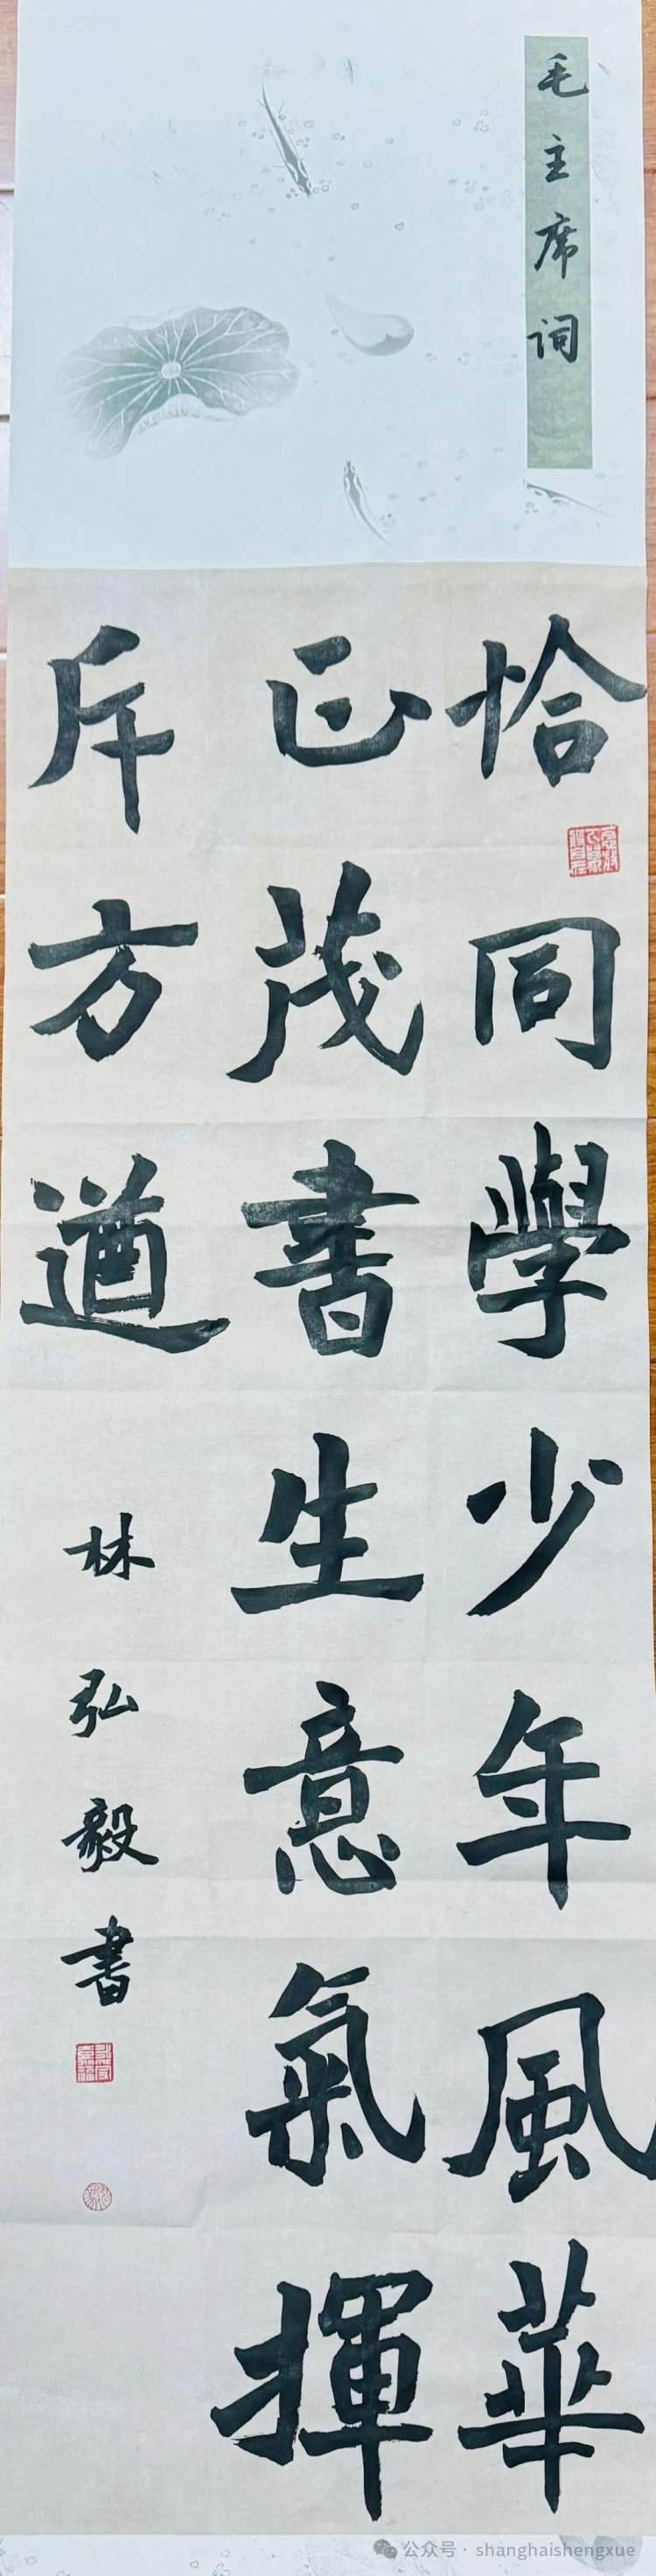 毛主席词
恰同學少年風華
正茂書生意氣揮
斥方遒
林弘毅書
公众号 · shanghaishengxue